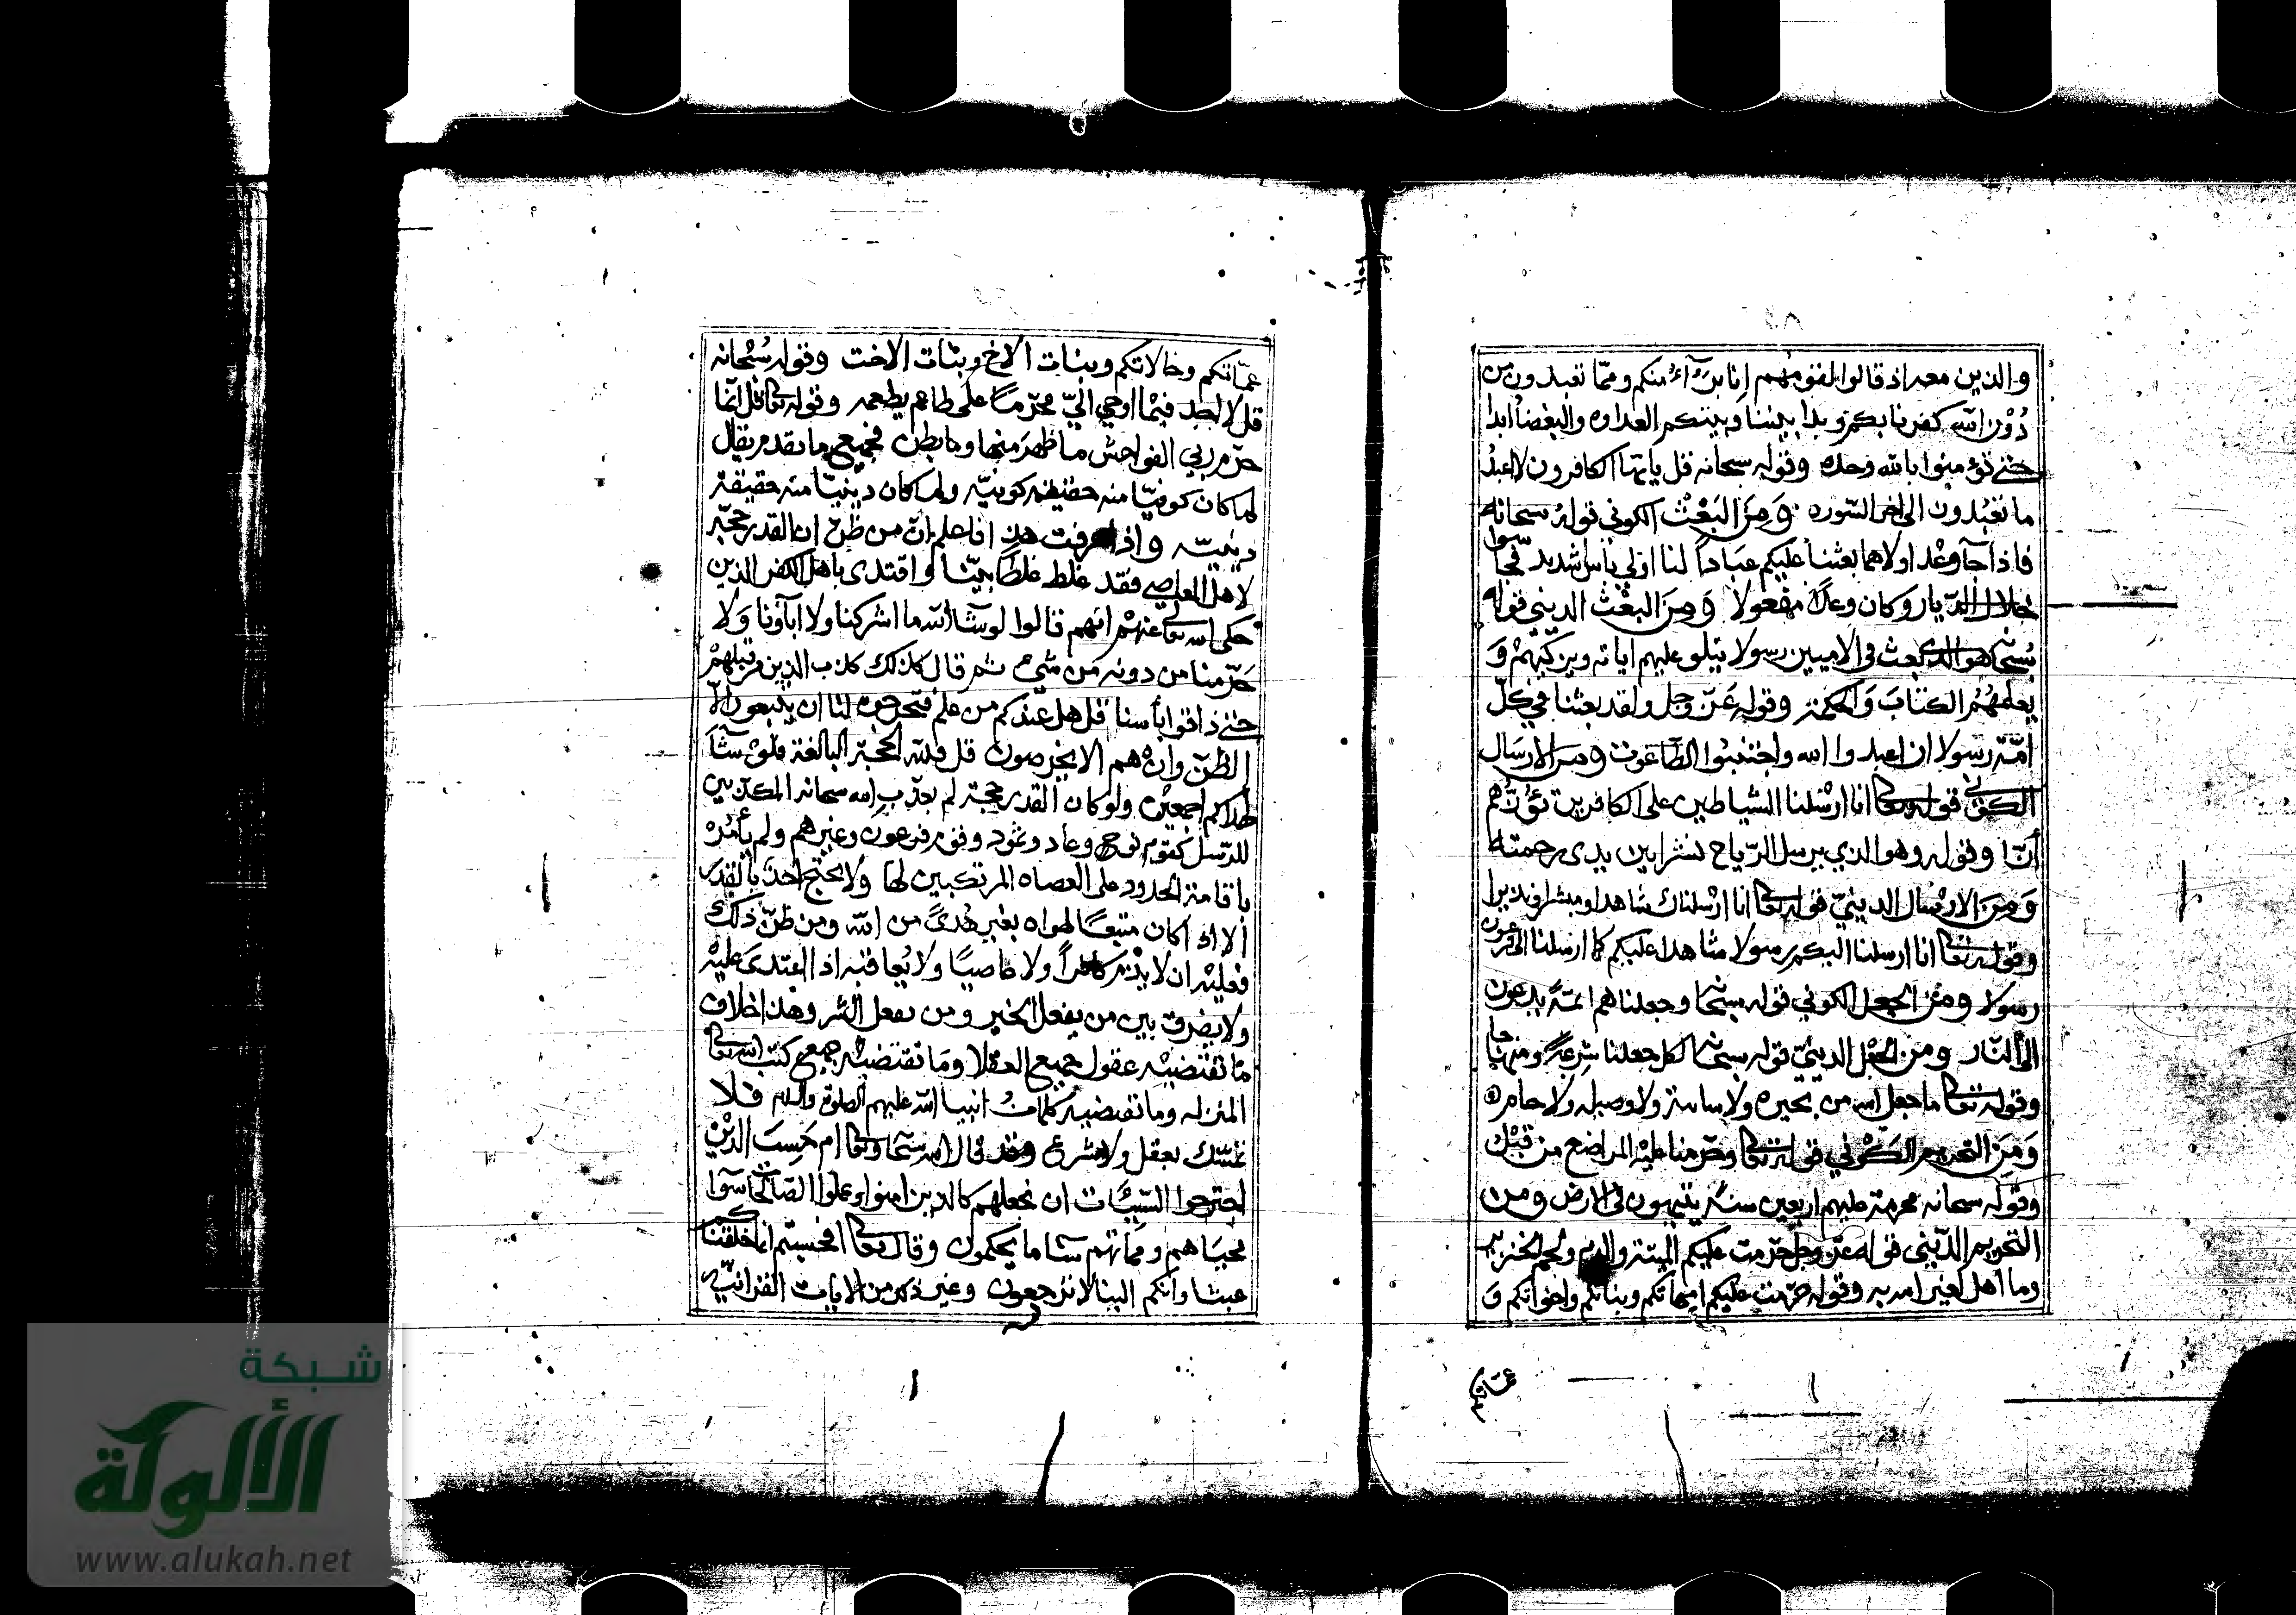 والذين معه اذ قالوا لقومهم انا برآء منكم ومما تعبدون من
دون الله كفرنا بكم وبدا بيننا وبينكم العداوه والبغضا ابدا
حتى تؤمنوا بالله وحده وقوله سبحانه قل يا ايها الكافرون لا اعبد
ما تعبدون الى اخر السوره وَمِنَ البَعْث الكوني قوله سبحانه
فاذا جآ وعد اولاهما بعثنا عليكم عبادا لنا اولي بأس شديد فجاسوا
خلال الديار وكان وعدا مفعولا وَمِنَ البعْث الديني قوله
سبحانه هو الذى بعث في الاميين رسولا يتلو عليهم اياته ويزكيهم وَ
يعلمهُمُ الكتابَ وَالحكمة وقوله عَزّ وجل ولقد بعثنا في كلّ
امّة رسولا ان اعبدوا الله واجتنبُوا الطاغوت ومن الارسال
الكوني قوله تعالى انا ارسلنا الشياطين على الكافرين تؤزهم
أزّا وقوله وهو الذي يرسل الرياح نشرا بين يدى رحمته
وَمِنَ الارسال الدينيّ قوله تعالى انا ارسلناك شاهدا ومبشرا ونذيرا
وقوله تعالى انا ارسلنا اليكم رسولا شاهدا عليكم كما ارسلنا الى فرعون
رسولا ومن الجعل الكوني قوله سبحانه وجعلناهم ائمّةً يدعون
الى النار ومن الجعل الدينيّ قوله سبحانه لكل جعلنا شِرعةً ومنهاجا
وقوله تعالى ما جعل الله من بحيره ولا سائبة ولا وصيله ولا حام
وَمِنَ التحريم الكَوْني قوله تعالى وحرّمنا عليْه المراضع من قبْل
وقوله سبحانه محرمة عليهم اربعين سنة يتيهون في الارض ومن
التحريم الدّيني قوله عزّ وجل حرّمت عليكم الميتة والدم ولحم الخنزير
وما اهل لغير الله به وقوله حرّمت عليكم امهاتكم وبناتكم واخواتكم وَ
عمّاتكم
عمّاتكم وخالاتكم وبنات الاخ وبنات الاخت وقوله سُبْحانه
قل لا اجد فيْما اوحي اليّ محرّما على طاعم يطعمه وقوله تعالى قل انما
حرّم ربي الفواحش ما ظهَرَ منها وما بطن فجميع ما تقدم يقال
لما كان كونيّا منه حقيقه كونيّه ولما كان دينيّا منه حقيقة
دينيّه واذا عرفت هذا فاعلم انّ من ظنّ ان القدر حجّة
لاهل المعاصي فقد غلط غلطًا بيّنا واقتدى باهل الكفر الذين
حكى الله تعالى عنهمْ انهم قالوا لو شآ الله ما اشركنا ولا اباؤنا وَلا
حَرّمنا من دونه مَن شيء ثم قال كذلك كذب الذين من قبلهمْ
حتى ذاقوا بأسنا قل هل عندكم من علم فتخرجوه لنا ان يتبعون الا
الظنّ وان هم الا يخرصون قل فلله الحجّة البالغة فلوْ شآ
لهداكم اجمعيْن ولو كان القدر حجة لم يعذّبِ الله سبحانه المكذبين
للرّسل كقوم نوح وعاد وثمود وقوم فرعون وغيرهم ولم يأمرْ
باقامة الحدود على العصاه المرتكبين لها ولا يحتج احد بالقدر
الا اذا كان متبعًا لهواه بغير هُدىً من الله ومن ظنّ ذلك
فعليْه ان لا يذم كافراً ولا عاصيًا ولا يُعاقبه اذا اعتدى عليْه
ولا يفرق بين من يفعل الخير ومن يفعل الشر وهذا خلاف
ما تقتضيْه عقول جميع العقلا ومَا تقتضيْه جميع كتب الله تعالى
المنزله وما تقتضيه كلماتُ انبيا الله عليهم الصلوة والسلام فلا
تمسّك بعقل ولا شرع وقد قال الله سبحانه وتعالى ام حَسِبَ الذيْن
اجترحوا السّيّئات ان نجعلهم كالذين امنوا وعملوا الصالحات سوآ
محيَاهم ومماتهم سآ ما يحكمون وقال تعالى افحسبتم انما خلقناكم
عبثا وانكم الينا لا ترجعون وغير ذلك من الايات القرانيّه
شبكة
الألوكة
www.alukah.net